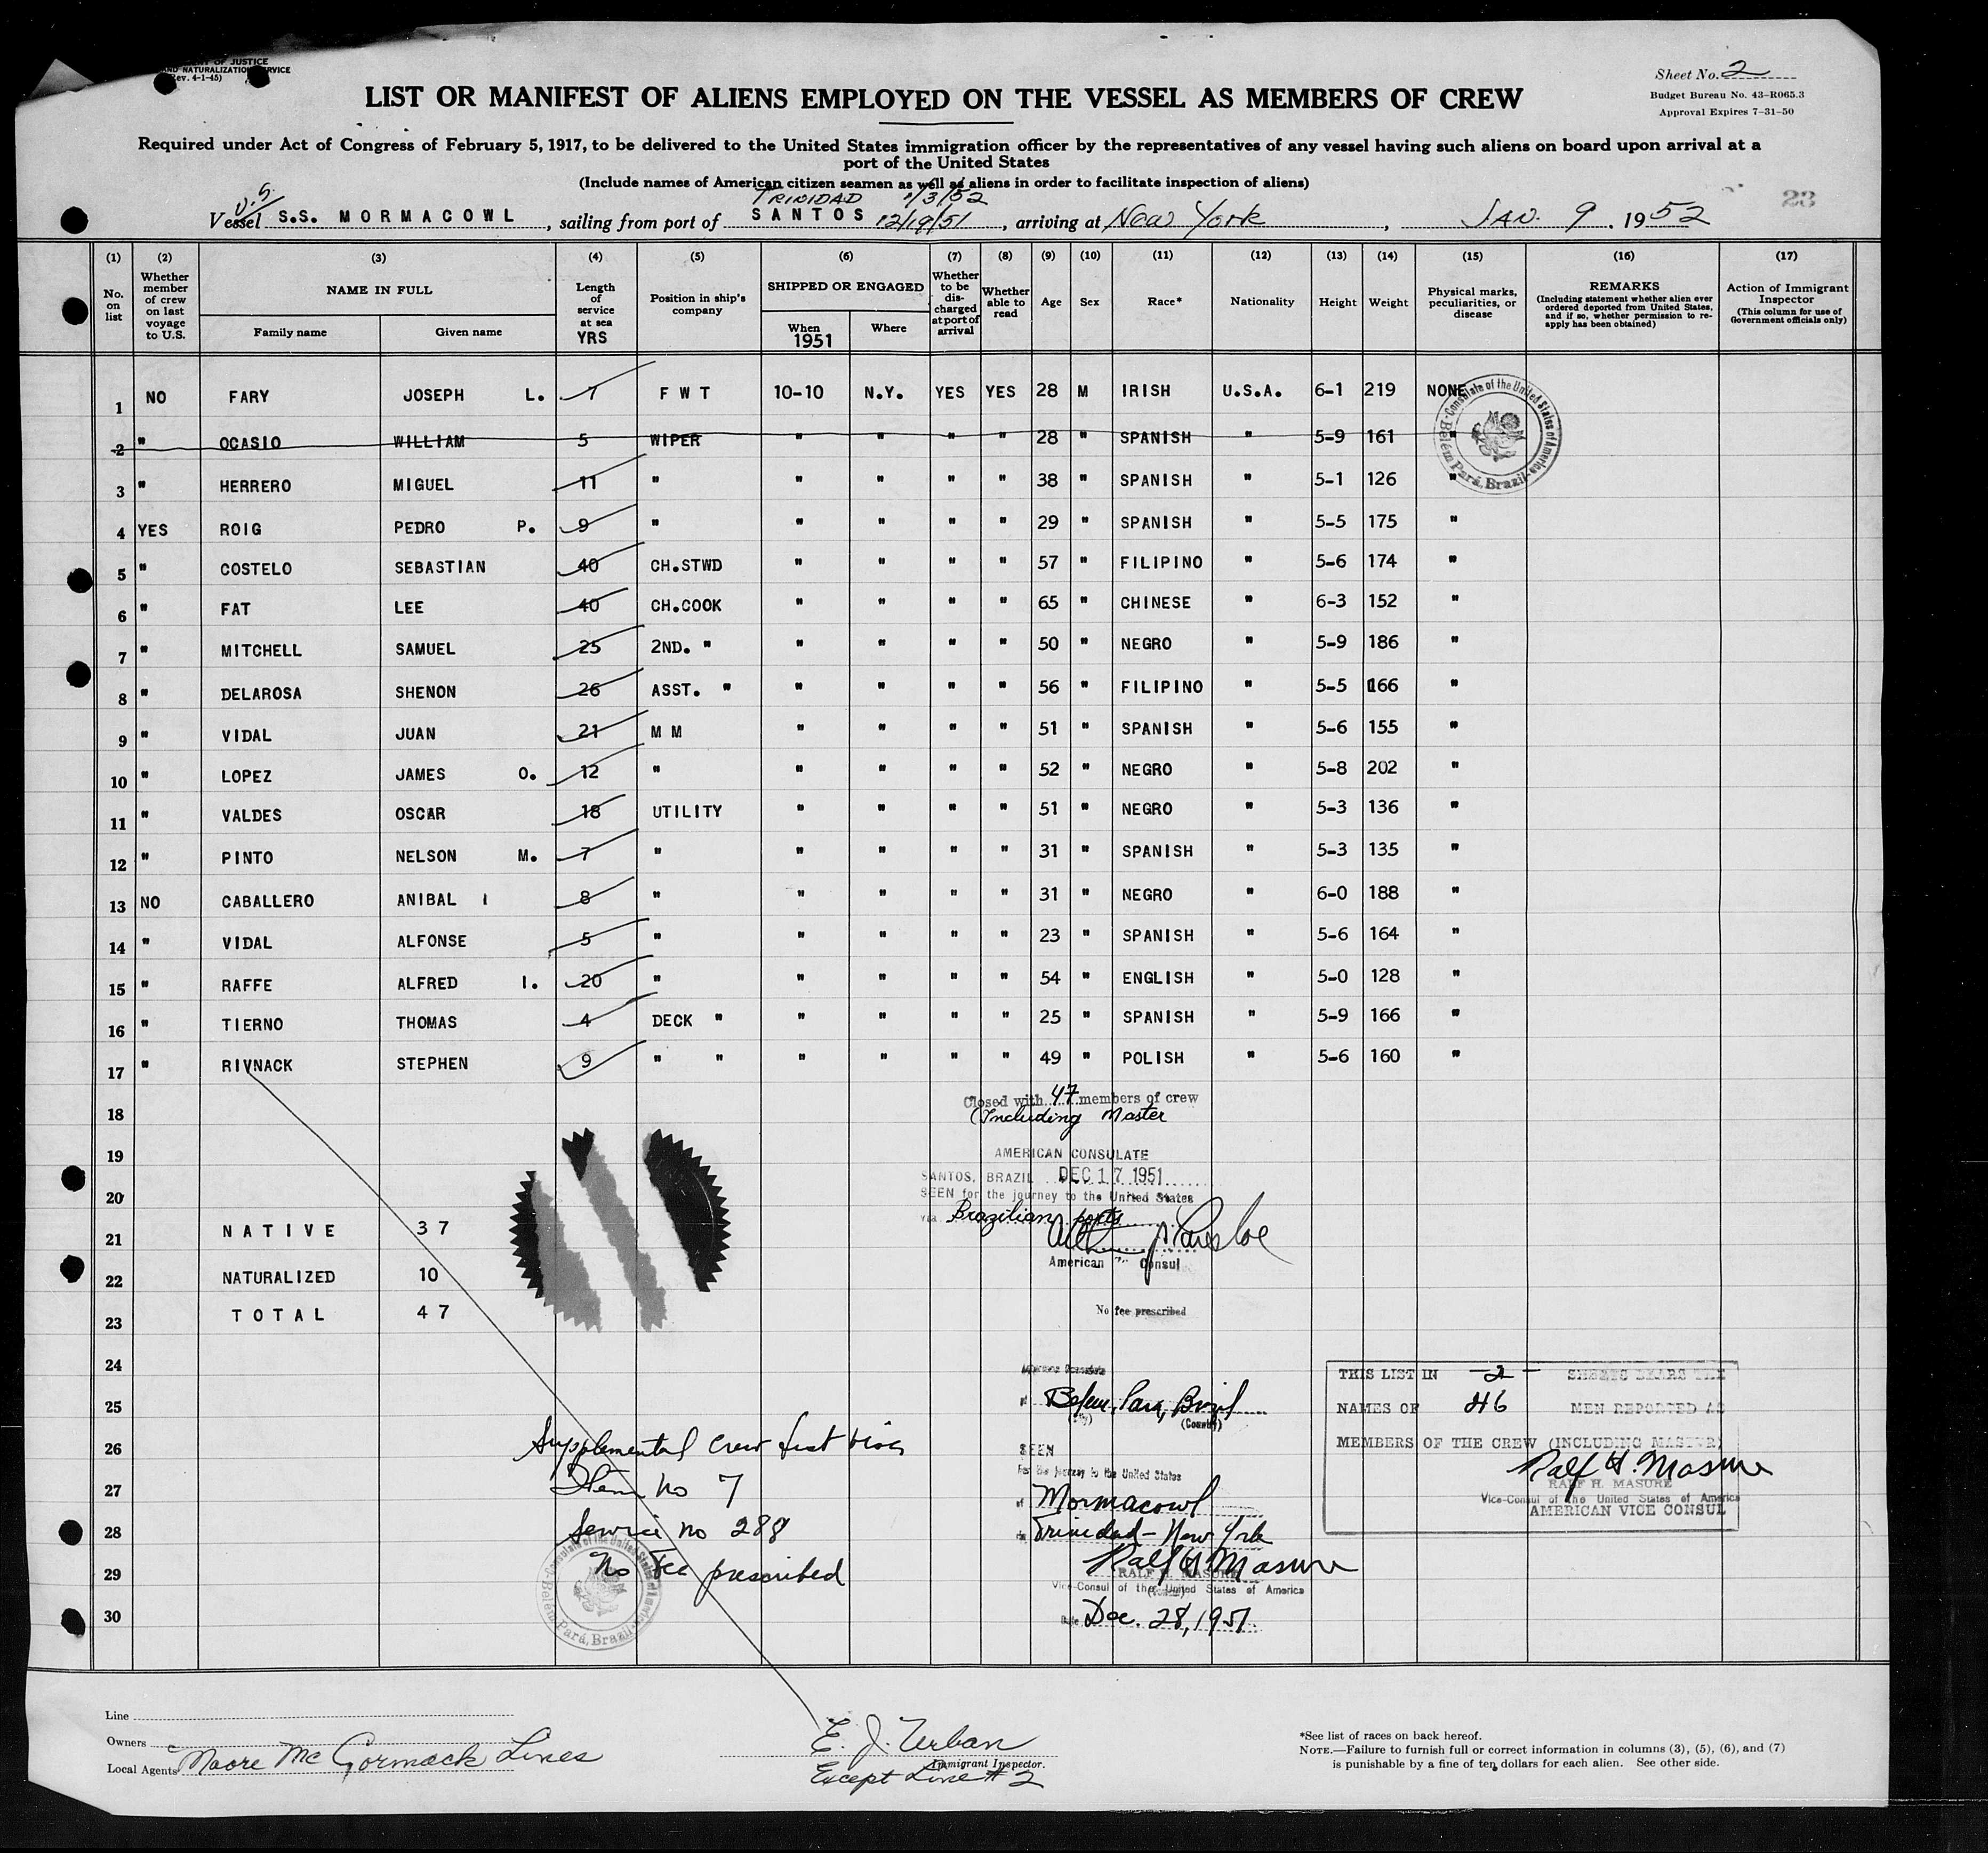 OF JUSTICE
NATURALIZATION SERVICE
(Rev. 4-1-45)
Sheet No. 2
Budget Bureau No. 43-R065.3
Approval Expires 7-31-50
LIST OR MANIFEST OF ALIENS EMPLOYED ON THE VESSEL AS MEMBERS OF CREW
Required under Act of Congress of February 5, 1917, to be delivered to the United States immigration officer by the representatives of any vessel having such aliens on board upon arrival at a
port of the United States
(Include names of American citizen seamen as well as aliens in order to facilitate inspection of aliens)
U.S. TRINIDAD 1/3/52
Vessel S.S. MORMACOWL, sailing from port of SANTOS 12/19/51, arriving at New York, JAN. 9, 1952
23
(1) (2) (3) (4) (5) (6) (7) (8) (9) (10) (11) (12) (13) (14) (15) (16) (17)
No. on list
Whether member of crew on last voyage to U.S.
NAME IN FULL
Family name
Given name
Length of service at sea YRS
Position in ship's company
SHIPPED OR ENGAGED
When 1951
Where
Whether to be discharged at port of arrival
Whether able to read
Age
Sex
Race*
Nationality
Height
Weight
Physical marks, peculiarities, or disease
REMARKS
(Including statement whether alien ever ordered deported from United States, and if so, whether permission to reapply has been obtained)
Action of Immigrant Inspector
(This column for use of Government officials only)
1 NO FARY JOSEPH L. 7 F W T 10-10 N.Y. YES YES 28 M IRISH U.S.A. 6-1 219 NONE
2 " OCASIO WILLIAM 5 WIPER " " " " 28 " SPANISH " 5-9 161 "
3 " HERRERO MIGUEL 11 " " " " " 38 " SPANISH " 5-1 126 "
4 YES ROIG PEDRO P. 9 " " " " " 29 " SPANISH " 5-5 175 "
5 " COSTELO SEBASTIAN 40 CH.STWD " " " " 57 " FILIPINO " 5-6 174 "
6 " FAT LEE 40 CH.COOK " " " " 65 " CHINESE " 6-3 152 "
7 " MITCHELL SAMUEL 25 2ND. " " " " " 50 " NEGRO " 5-9 186 "
8 " DELAROSA SHENON 26 ASST. " " " " " 56 " FILIPINO " 5-5 166 "
9 " VIDAL JUAN 21 M M " " " " 51 " SPANISH " 5-6 155 "
10 " LOPEZ JAMES O. 12 " " " " " 52 " NEGRO " 5-8 202 "
11 " VALDES OSCAR 18 UTILITY " " " " 51 " NEGRO " 5-3 136 "
12 " PINTO NELSON M. 7 " " " " " 31 " SPANISH " 5-3 135 "
13 NO CABALLERO ANIBAL I 8 " " " " " 31 " NEGRO " 6-0 188 "
14 " VIDAL ALFONSE 5 " " " " " 23 " SPANISH " 5-6 164 "
15 " RAFFE ALFRED I. 20 " " " " " 54 " ENGLISH " 5-0 128 "
16 " TIERNO THOMAS 4 DECK " " " " " 25 " SPANISH " 5-9 166 "
17 " RIVNACK STEPHEN 9 " " " " " " 49 " POLISH " 5-6 160 "
Consulate of the United States of America
Belém Pará, Brazil
18
19
20
21
22
23
24
25
26
27
28
29
30
Closed with 47 members of crew
(Including Master
AMERICAN CONSULATE
SANTOS, BRAZIL DEC 17 1951
SEEN for the journey to the United States
via Brazilian ports
American Consul
No fee prescribed
NATIVE 37
NATURALIZED 10
TOTAL 47
American Consulate
at Belem, Para, Brazil
(City) (Country)
SEEN
For the journey to the United States
of Mormacowl
via Trinidad - New York
Ralf H. Masure
RALF H. MASURE
Vice-Consul of the United States of America
Date Dec. 28, 1951
THIS LIST IN -2- SHEETS BEARS THE
NAMES OF 46 MEN REPORTED AS
MEMBERS OF THE CREW (INCLUDING MASTER)
Ralf H. Masure
RALF H. MASURE
Vice-Consul of the United States of America
AMERICAN VICE CONSUL
Supplemental Crew List visa
Item no 7
Service no 288
No Fee prescribed
Consulate of the United States of America
Belém Pará, Brazil
Line
Owners
Local Agents Moore McCormack Lines
E. J. Urban
Immigrant Inspector.
Except Line #2
*See list of races on back hereof.
NOTE.—Failure to furnish full or correct information in columns (3), (5), (6), and (7)
is punishable by a fine of ten dollars for each alien. See other side.